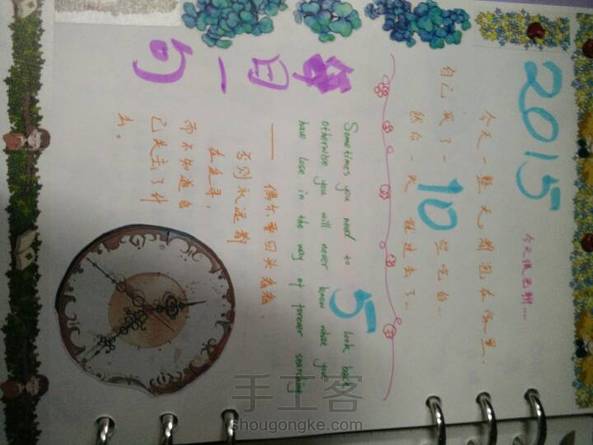 2015
今天一整天都泡在
10
自己买了一些吃的...
然后一天就过去了...
5
Sometimes you need to look back
otherwise you will never know what you
have lose in the way of forever searching
每日一句
——偶尔要回头看看,
否则永远都
在追寻,
而不知道自
己失去了什
么。
手工客
shougongke.com